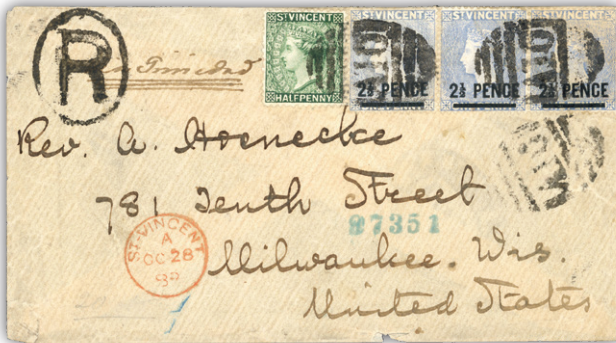 R
Trinidad
ST VINCENT
HALFPENNY
ST VINCENT
2½ PENCE
ST VINCENT
2½ PENCE
ST VINCENT
2½ PENCE
A10
A10
A10
Rev. A. Hoenecke
781 Tenth Street
97351
ST. VINCENT
A
OC 28
Milwaukee. Wis.
United States